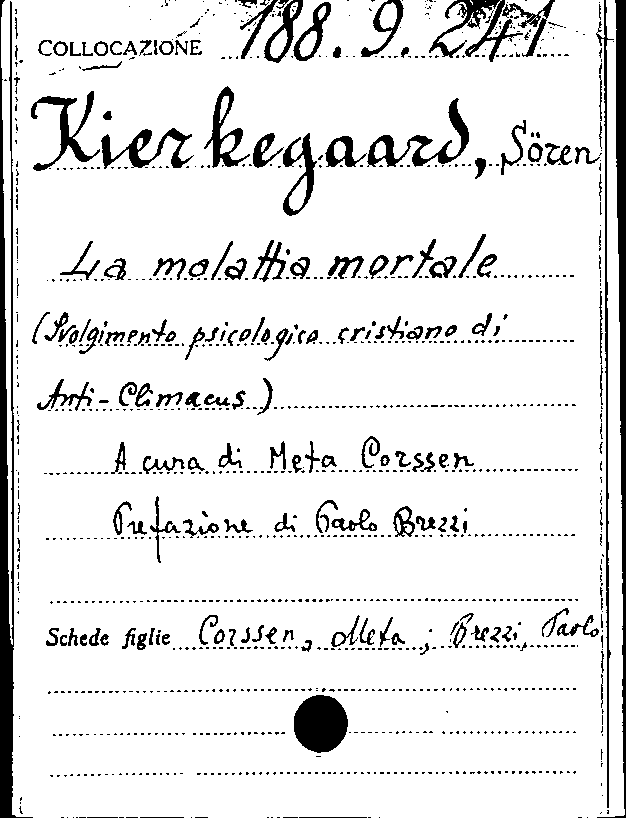 COLLOCAZIONE 188.9.241
Kierkegaard, Sören
La malattia mortale
(Svolgimento psicologico cristiano di
Anti-Climacus)
A cura di Meta Corssen
Prefazione di Paolo Brezzi
Schede figlie Corssen, Meta; Brezzi, Paolo